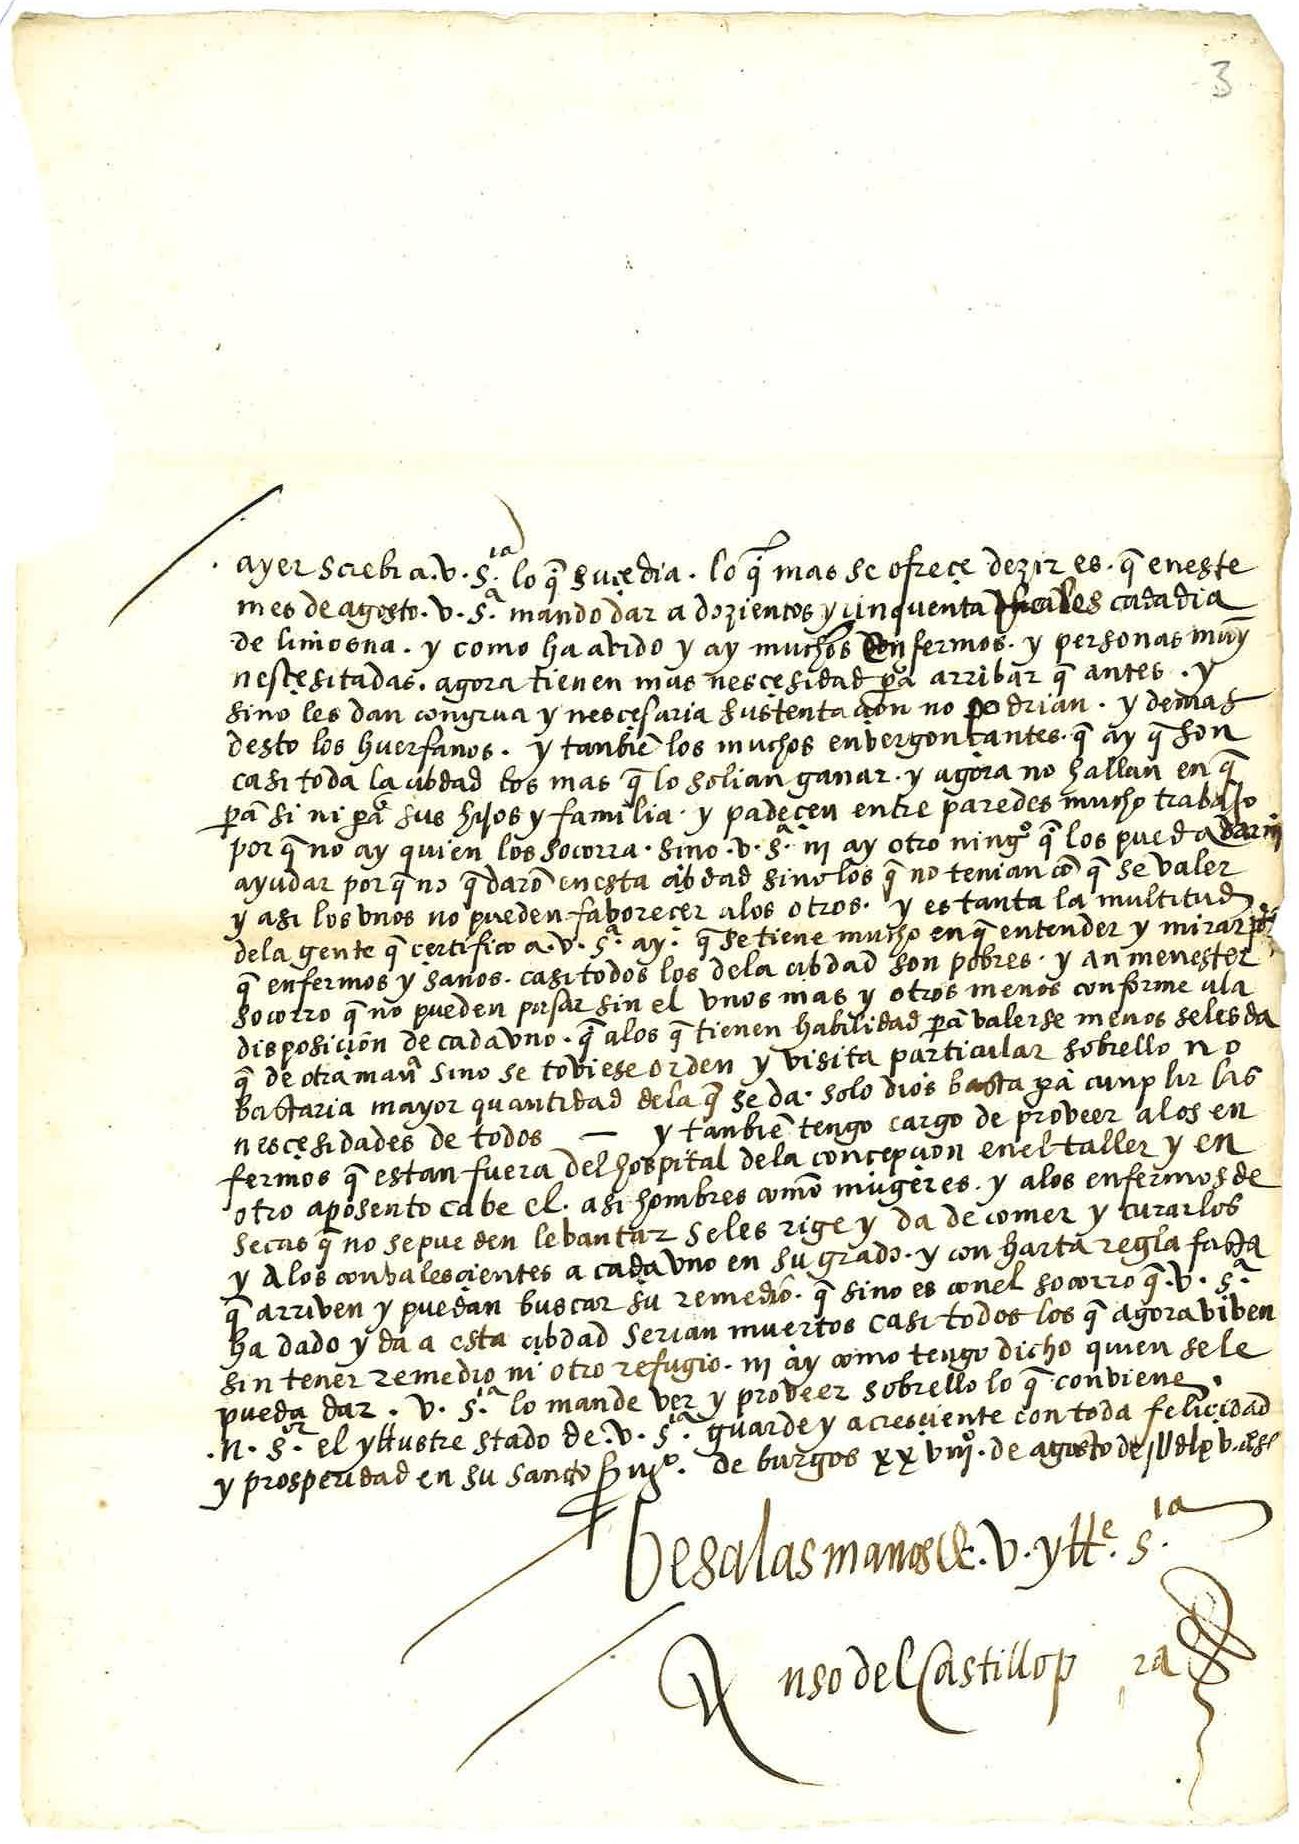 3
ayer screbi a .v. s.ia lo q̃ suçedia . lo q̃ mas se ofreçe dezir es . q̃ eneste
mes de agosto . v. s.a mando dar a dozientos y cinquenta Reales cada dia
de limosna . y como ha avido y ay muchos enfermos . y personas muy
nesçesitadas . agora tienen mas nesçesidad pa arribar q̃ antes . y
sino les dan congrua y nesçesaria sustentaçion no podrian . y demas
desto los huerfanos . y tanbiẽ los muchos envergonçantes . q̃ ay q̃ son
casi toda la cibdad los mas q̃ lo solian ganar . y agora no hallan en q̃
pa si ni pa sus hijos y familia . y padeçen entre paredes mucho trabajo
porq̃ no ay quien los socorra . sino .v. s.a ni ay otro ningo q̃ los pueda dar ni
ayudar porq̃ no q̃darõ enesta cibdad sino los q̃ no tenian cõ q̃ se valer
y asi los vnos no pueden faborecer alos otros . y es tanta la multitud
dela gente q̃ çertifico a .v. s.a ay . q̃ se tiene mucho en q̃ entender y mirar
q̃ enfermos y sanos . casi todos los dela cibdad son pobres . y an menester
socorro q̃ no pueden pasar sin el vnos mas y otros menos conforme ala
disposiçion de cada vno . q̃ alos q̃ tienen habilidad pa valerse menos seles da
q̃ de otra man̄a sino se tobiese orden y visita particular sobrello no
bastaria mayor quantidad dela q̃ se da . solo dios basta pa cunplir las
nesçesidades de todos — y tanbiẽ tengo cargo de proveer alos en
fermos q̃ estan fuera del hospital dela conçepçion enel taller y en
otro aposento cabe el . asi hombres como mugeres . y alos enfermos de
secas q̃ no se pueden lebantar seles rige y da de comer y curarlos
y alos convalesçientes a cada vno en su grado . y con harta regla fasta
q̃ arriven y puedan buscar su remedio . q̃ sino es conel socorro q̃ .v. s.a
ha dado y da a esta cibdad serian muertos casi todos los q̃ agora biben
sin tener remedio ni otro refugio . ni ay como tengo dicho quien sele
pueda dar . v. s.a lo mande ver y proveer sobrello lo q̃ conviene .
.N. s.r el yllustre stado de .v. s.a guarde y acresçiente con toda feliçidad
y prosperidad en su sancto serui.o . de burgos xxviij.o de agosto de
Besa las manos de .v. ylle. s.ia
nso del Castillo